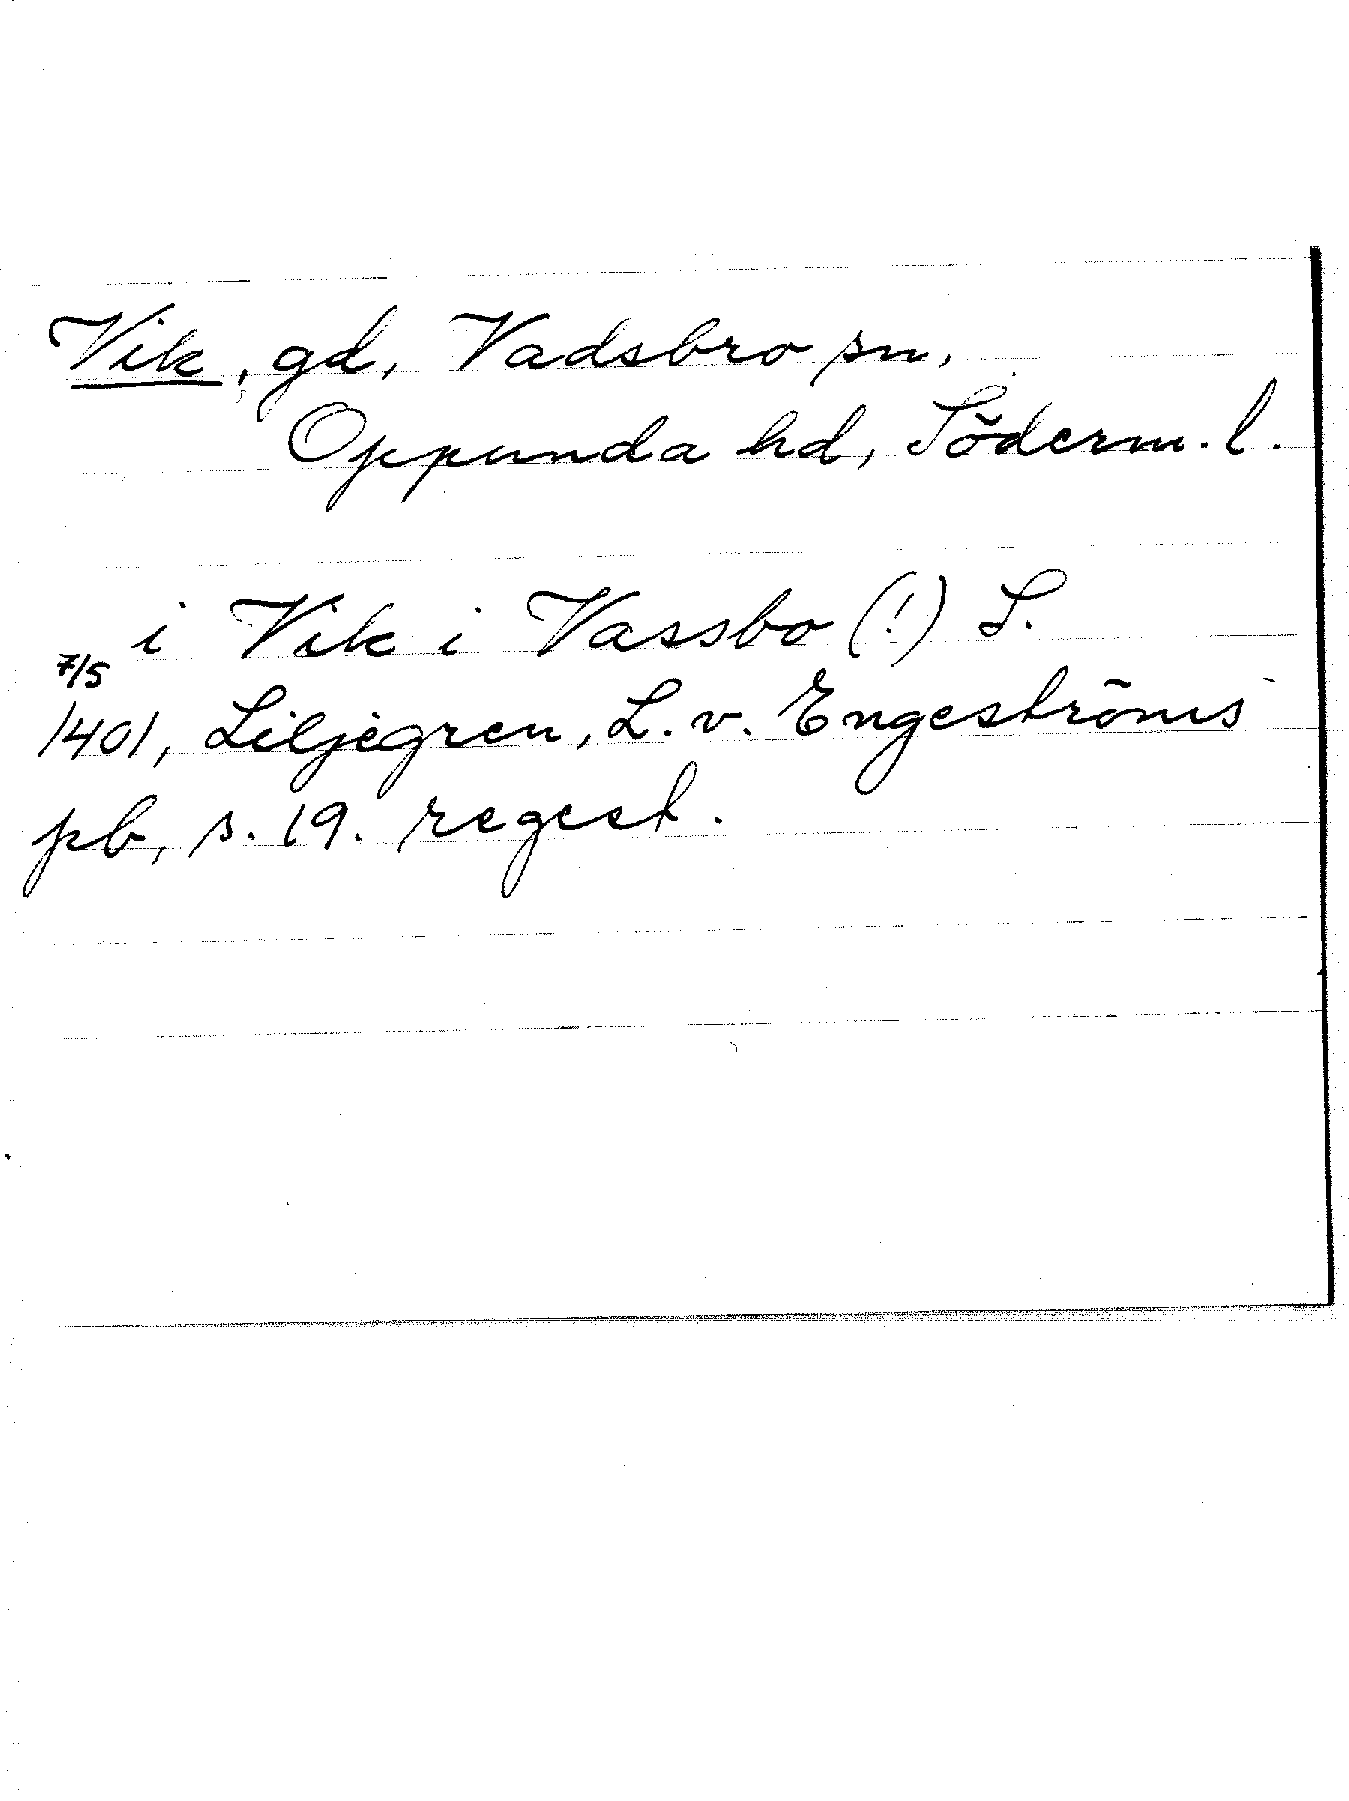 Vik, gd, Vadsbro sn,
Oppunda hd, Söderm. l.
i Vik i Vassbo (!) S.
7/5
1401, Liljegren, L. v. Engeströms
pb, s. 19. regest.